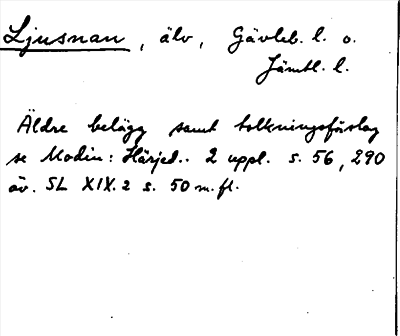 Ljusnan, älv, Gävleb. l. o.
Jämtl. l.
Äldre belägg samt tolkningsförslag
se Modin: Härjed.. 2 uppl. s. 56, 290
äv. SL XIX.2 s. 50 m.fl.